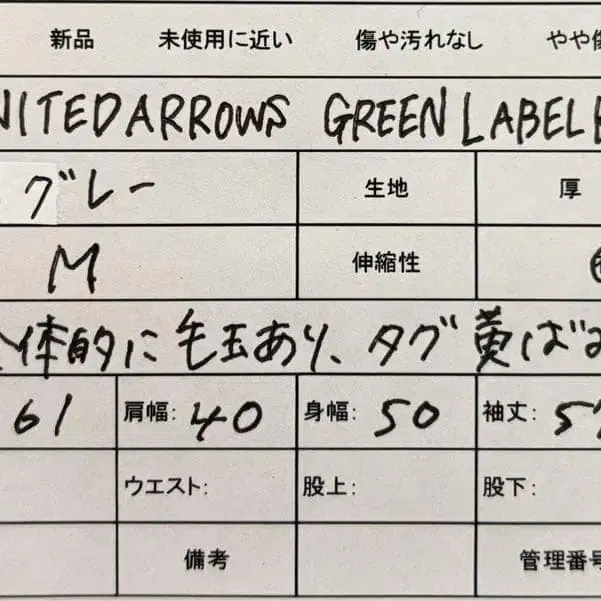 新品 未使用に近い 傷や汚れなし やや傷
NITEDARROWS GREEN LABEL
グレー 生地 厚
M 伸縮性
体的に毛玉あり、タグ黄ばみ
61 肩幅: 40 身幅: 50 袖丈: 5
ウエスト: 股上: 股下:
備考 管理番号